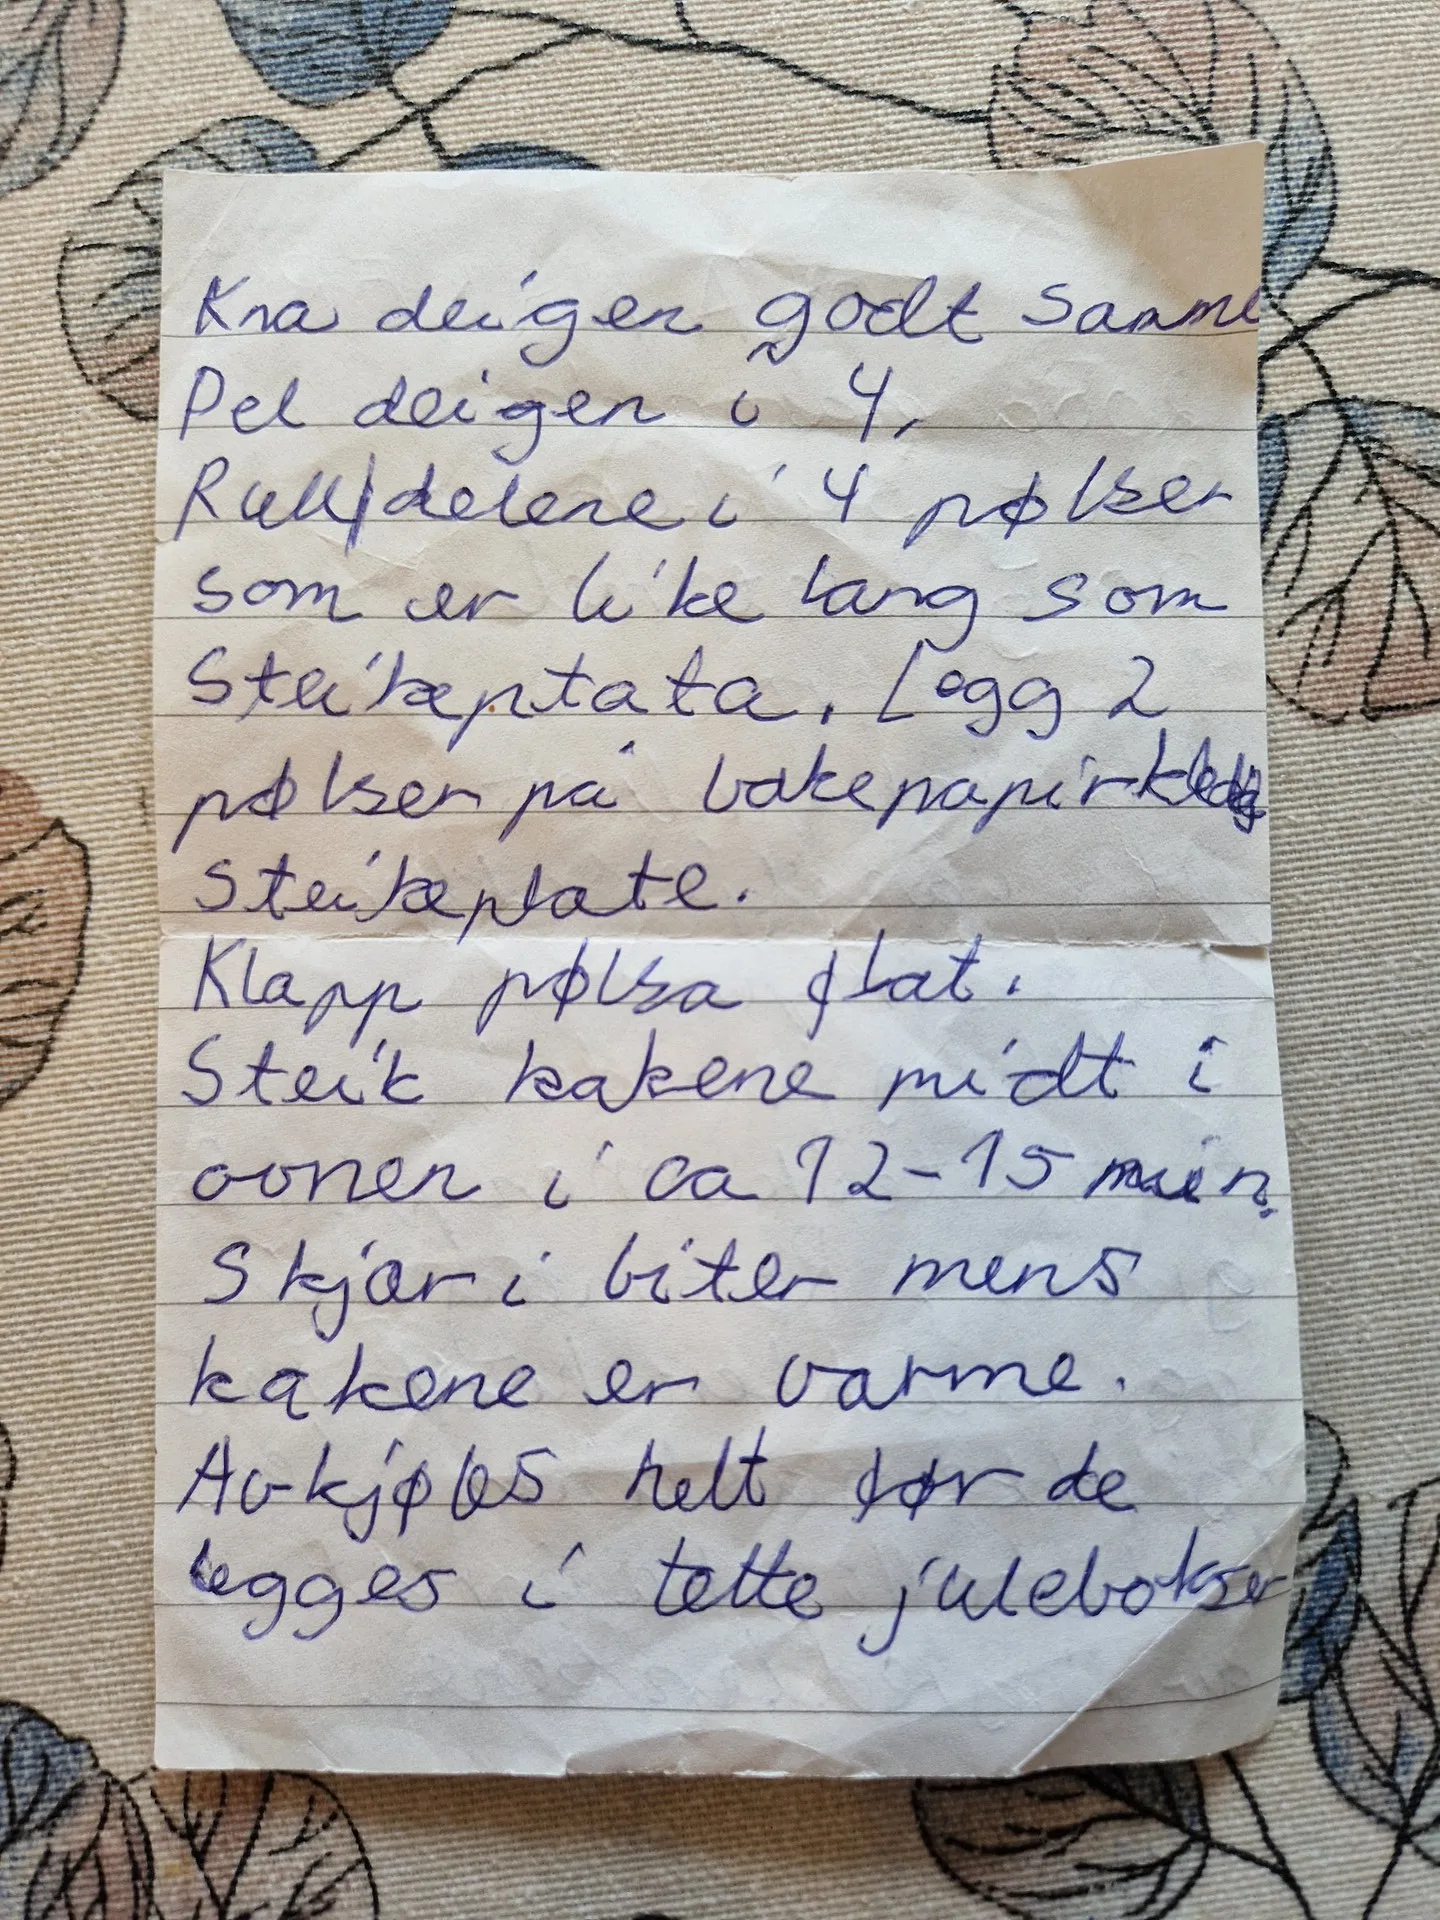 Kna deigen godt samme
Del deigen i 4,
Rull delene i 4 pølser
som er like lang som
Steikeplata. Legg 2
pølser på bakepapirkledig
steikeplate.
Klapp pølsa flat.
Steik kakene midt i
ovnen i ca 12-15 min.
Skjær i biter mens
kakene er varme.
Avkjøles helt før de
legges i tette julebokser